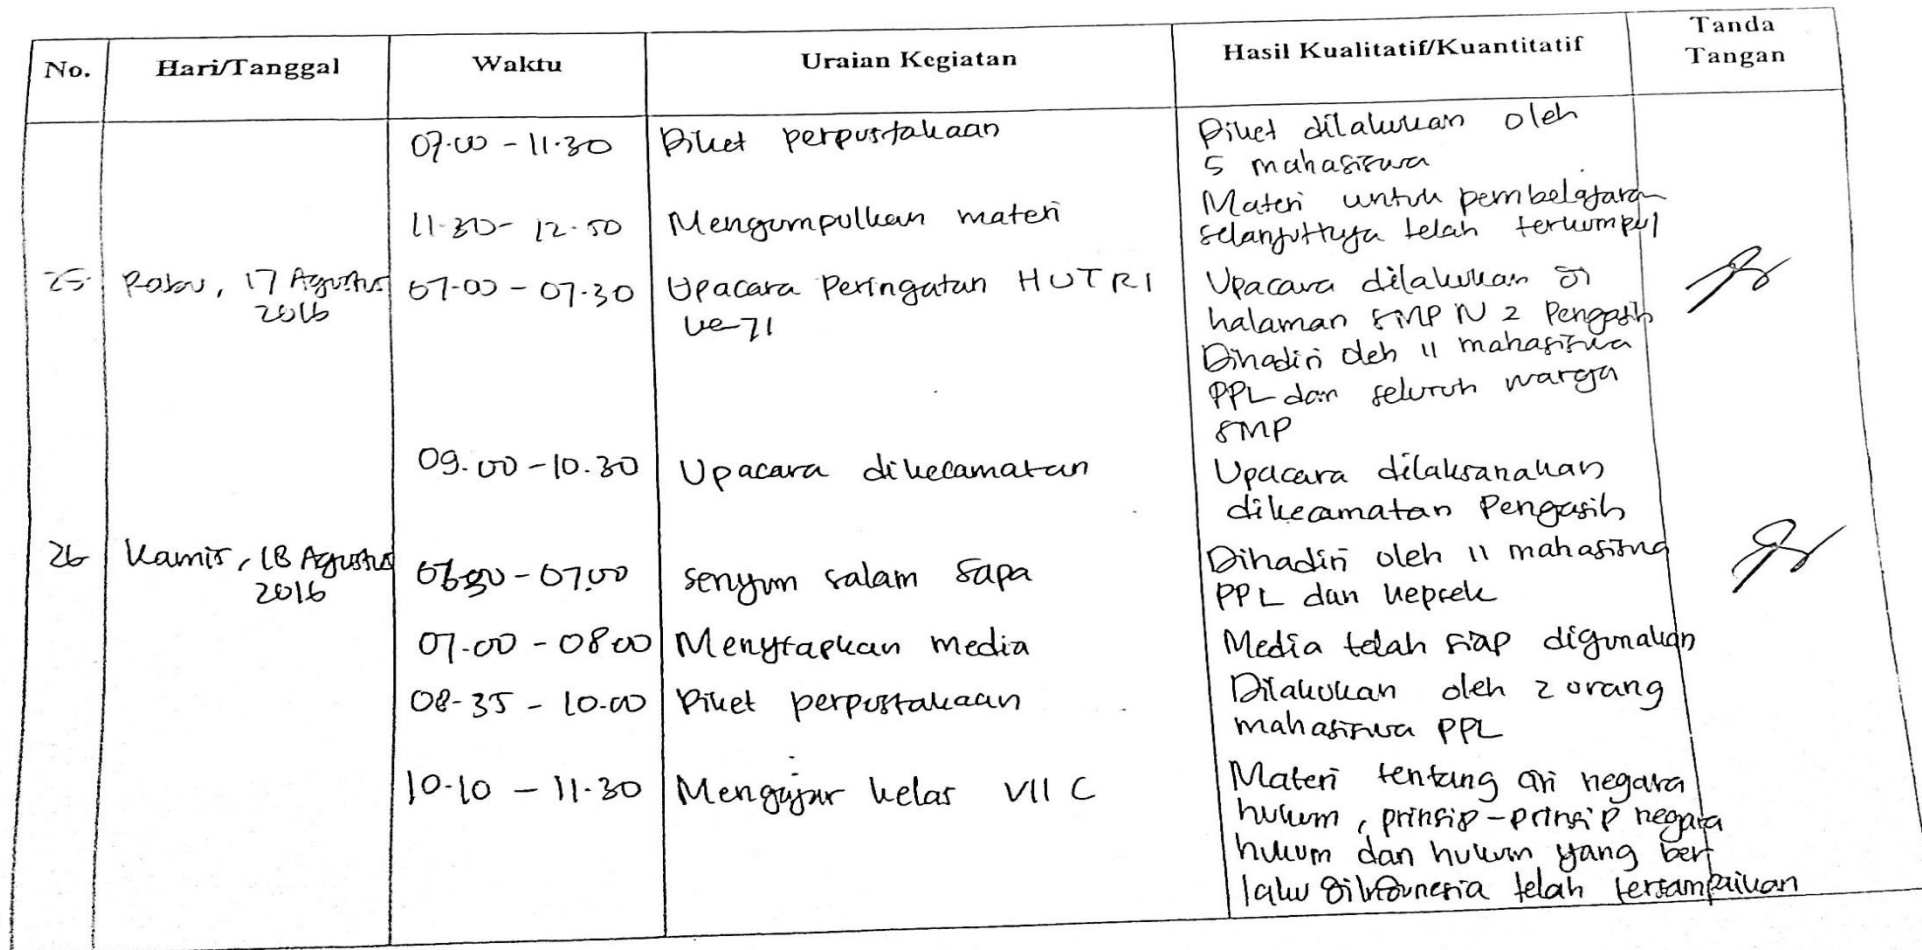 No. Hari/Tanggal Waktu Uraian Kegiatan Hasil Kualitatif/Kuantitatif Tanda Tangan
07.00 - 11.30 Piket perpustakaan Piket dilakukan oleh
5 mahasiswa
11.30 - 12.50 Mengumpulkan materi Materi untuk pembelajaran
selanjuttnya telah terkumpul
25. Rabu, 17 Agustus 07.00 - 07.30 Upacara Peringatan HUTRI Upacara dilakukan di
2016 ke-71 halaman SMP N 2 Pengasih
Dihadiri oleh 11 mahasiswa
PPL dan seluruh warga
SMP
09.00 - 10.30 Upacara dikecamatan Upacara dilaksanakan
dikecamatan Pengasih
26 Kamis, 18 Agustus 06.30 - 07.00 senyum salam sapa Dihadiri oleh 11 mahasiswa
2016 PPL dan kepsek
07.00 - 08.00 Menyiapkan media Media telah siap digunakan
08.35 - 10.00 Piket perpustakaan Dilakukan oleh 2 orang
mahasiswa PPL
10.10 - 11.30 Mengajar kelas VII C Materi tentang ciri negara
hukum, prinsip-prinsip negara
hukum dan hukum yang ber
laku diIndonesia telah tersampaikan